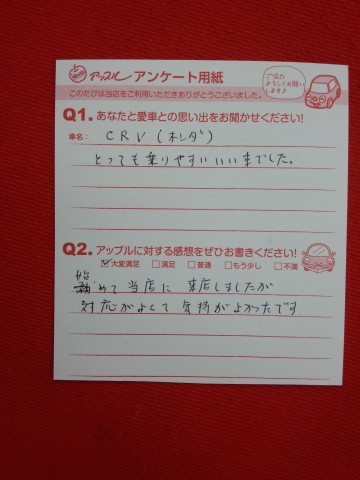 Apple アップル アンケート用紙
ご協力
よろしくお願い
します♪
このたびは当店をご利用いただきありがとうございました。
Q1. あなたと愛車との思い出をお聞かせください!
車名: CRV (ホンダ)
とっても乗りやすいいい車でした。
Q2. アップルに対する感想をぜひお書きください!
☑大変満足 □満足 □普通 □もう少し □不満
始めて当店に 来店しましたが
対応がよくて 気持がよかったです